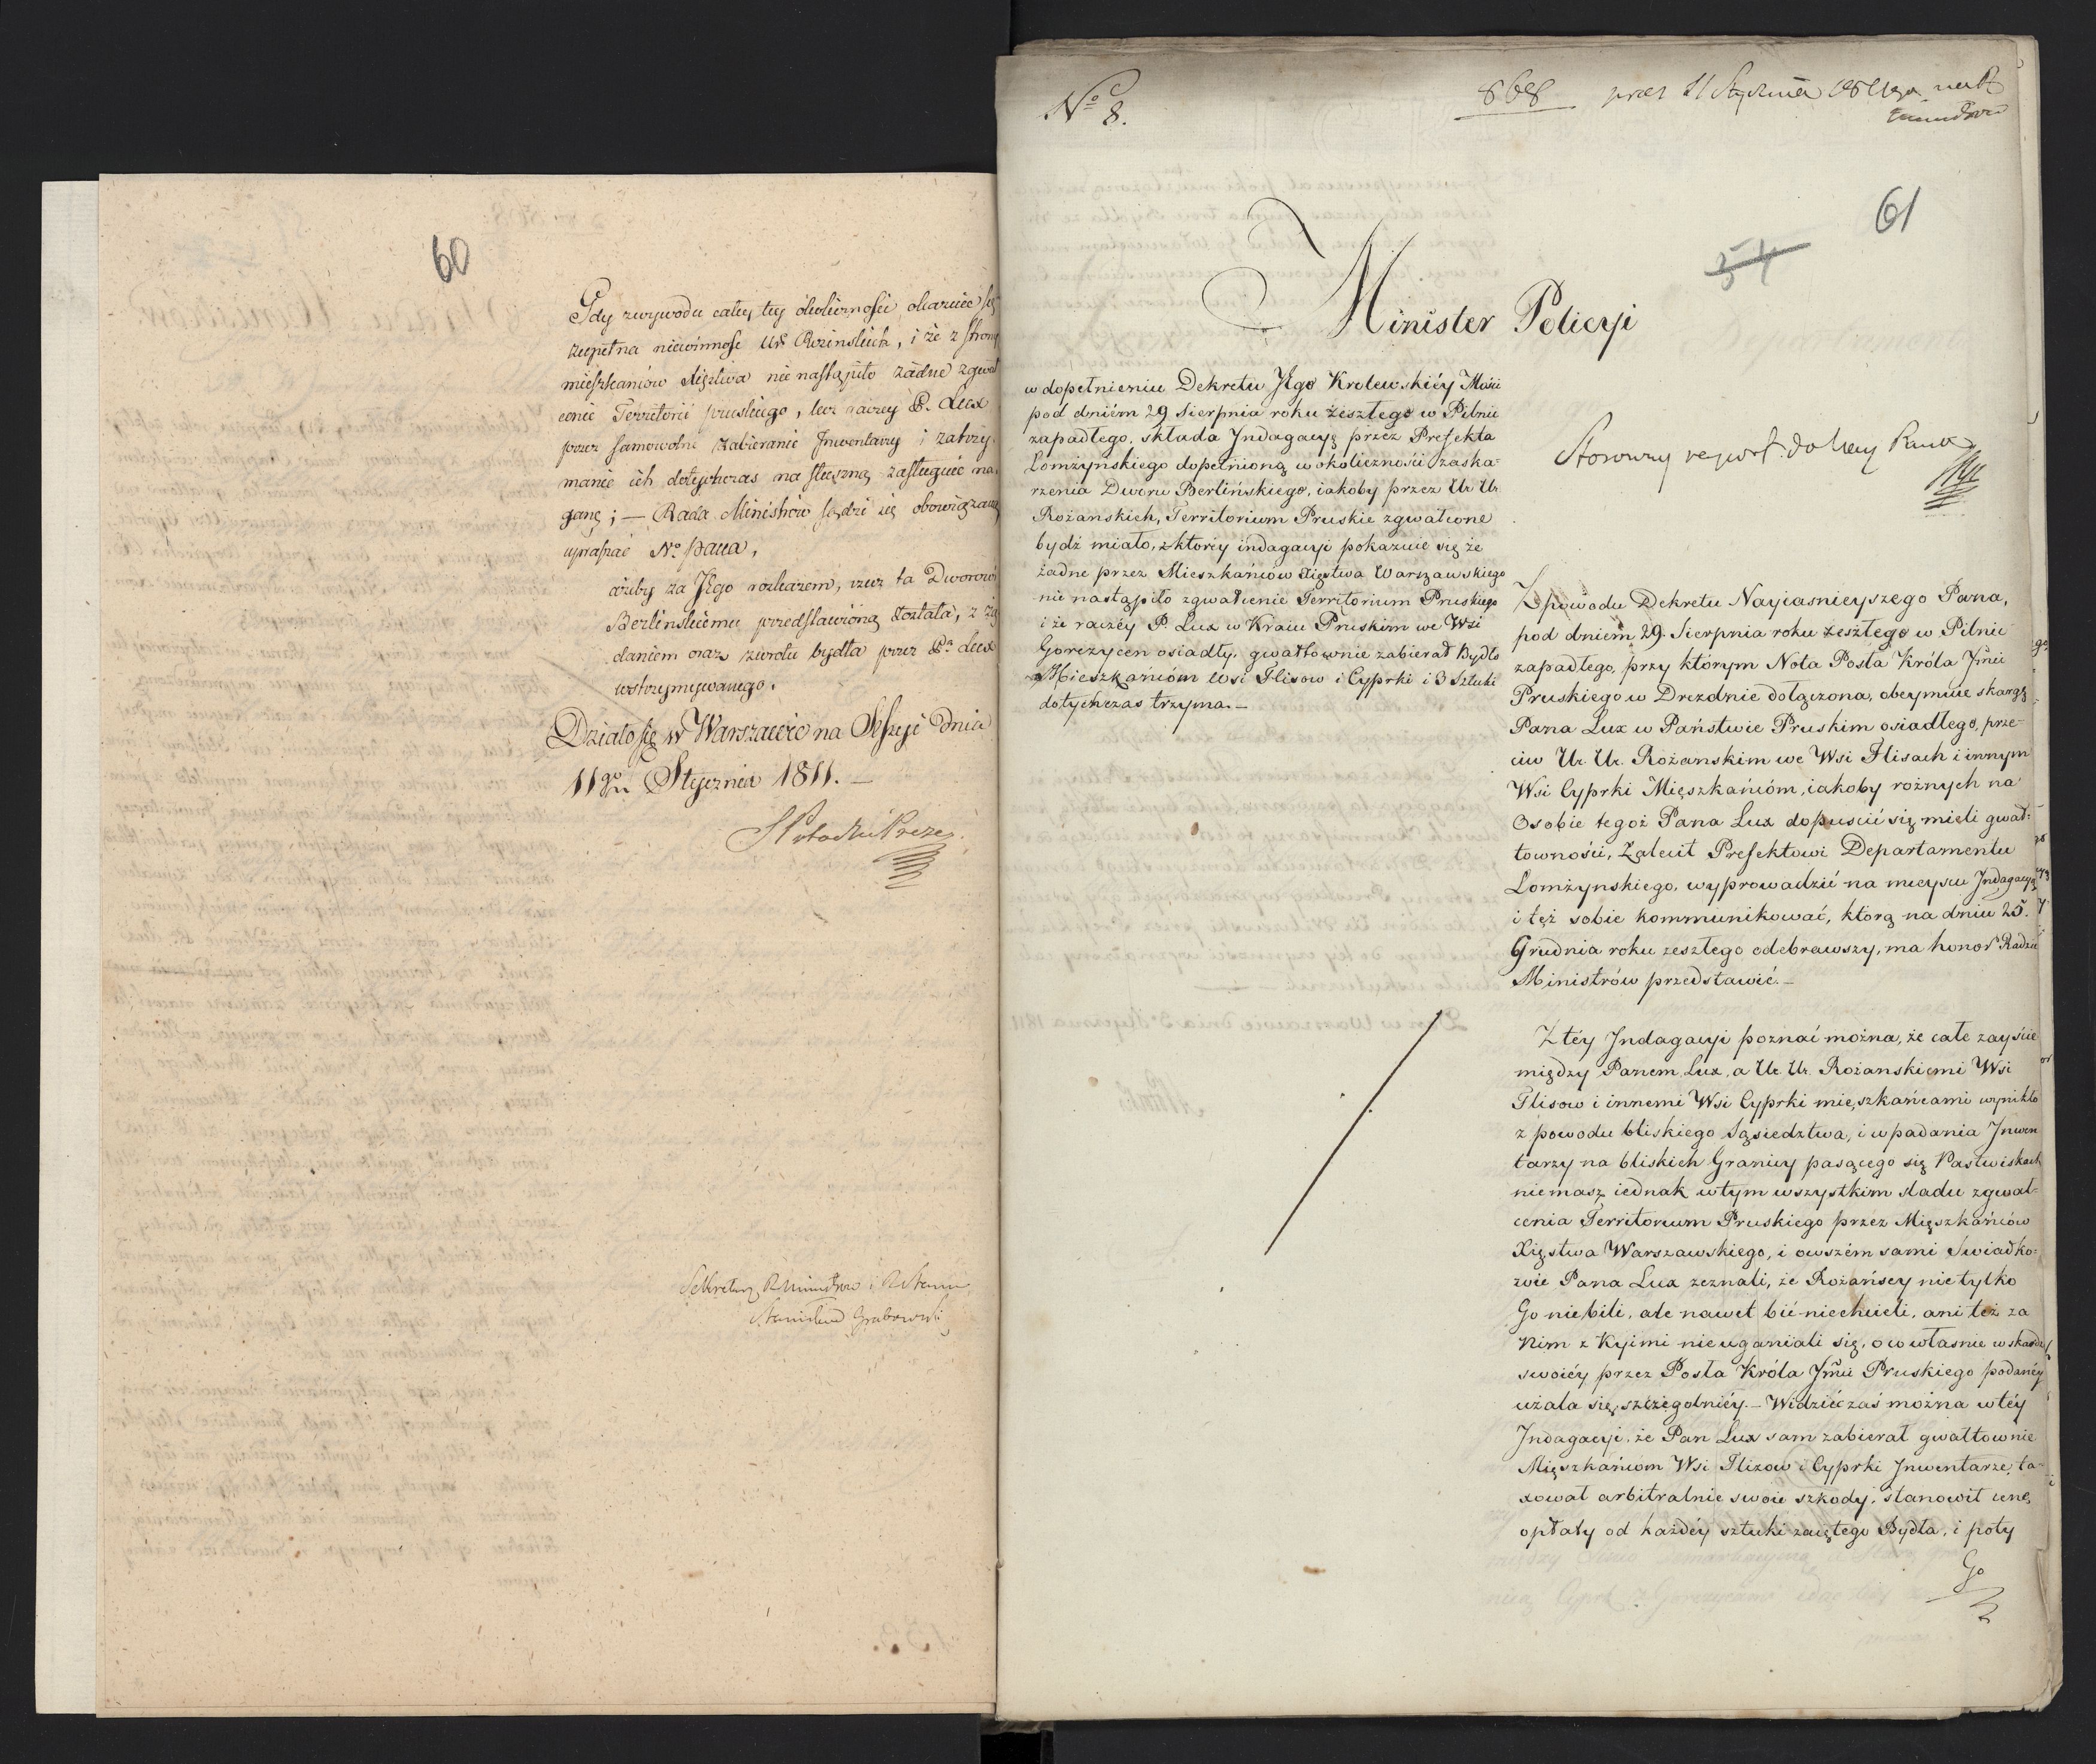 60
Gdy zwywodu całey tey okoliczności okazuie się
zupełna niewinność Ur Rozinskich, i że z strony
mieszkaniow Xięztwa nie nastąpiło żadne zgwał
cenie Territorii pruskiego, lecz raczey P. Luxx
przez samowolne zabieranie Inwentarzy i zatrzy
manie ich dotychczas na słuszną zasługuie na
ganę; — Rada Ministrów sądzi się obowiązaną
upraszać No pana,
ażeby za Jego rozkazem, rzecz ta Dworowi
Berlinskiemu przedstawioną została, z żą
daniem oraz zwrotu bydła przez Pa Luxx
wstrzymywanego.
Działo się w Warszawie na Sessyi dnia
11go Stycznia 1811. —
Potocki Prezes
Sekretarz R Ministrow i R Stanu
Stanisław Grabowski
No 8.
868 prez 11 Stycznia
61
54
Minister Policyi
w dopełnieniu Dekretu JKgo Krolewskiéy Mości
pod dniém 29 Sierpnia roku zeszłego w Pilnie
zapadłego, składa Jndagacyą przez Prefekta
Łomżynskiego dopełnioną w okoliczności zaska=
rzenia Dworu Berlińskiego, iakoby przez Ur Ur
Rożanskich, Territorium Pruskie zgwałcone
bydź miało, z ktoréy indagacyi pokazuie się że
żadne przez Mieszkańców Xięstwa Warszawskiego
nie nastąpiło zgwałcenie Territorium Pruskiego
i że raczéy P. Lux w Kraiu Pruskim we Wsi
Gorczycen osiadły, gwałtownie zabierał Bydło
Mieszkańcóm Wsi Flisow i Cyprki i 3 Sztuki
dotychczas trzyma. —
Z powodu Dekretu Nayiasnieyszego Pana,
pod dniem 29. Sierpnia roku zeszłego w Pilnie
zapadłego, przy którym Nota Posła Króla Jmci
Pruskiego w Dreznie dołączona, obeymuie skargę
Pana Lux w Państwie Pruskim osiadłego, prze=
ciw Ur. Ur. Rożanskim we Wsi Flisach i innym
Wsi Cyprki Mięszkańcóm, iakoby rożnych na
Osobie tegoż Pana Lux dopuscić się mieli gwał=
towności, Zalecił Prefektowi Departamentu
Łomżynskiego, wyprowadzić na mieyscu Jndagacyą
i téż sobie kommunikować, którą na dniu 25.
Grudnia roku zeszłego odebrawszy, ma honor Radzie
Ministrów przedstawić. —
Z téy Jndagacyi poznać można, że całe zayście
między Panem Lux, a Ur. Ur. Rożanskiemi Wsi
Flisow i innemi Wsi Cyprki mięszkańcami wynikło
z powodu bliskiego Sąsiedztwa, i wpadania Jnwen
tarzy na bliskich Granicy pasącego się Pastwiskach
niemasz iednak w tym wszystkim śladu zgwał=
cenia Territorium Pruskiego przez Mięszkańców
Xięstwa Warszawskiego, i owszém sami Swiadko=
wie Pana Lux zeznali, że Rożańscy nie tylko
Go niebili, ale nawet bić niechcieli, ani też za
Nim z Kyimi nieuganiali się, o co własnie w skardze
swoiéy przez Posła Króla Jmci Pruskiego podanéy
użala się szczegolniéy. — Widziéć zaś można w téy
Jndagacyi, że Pan Lux sam zabierał gwałtownie
Mięszkańcom Wsi Flizow i Cyprki Jnwentarze, ta=
xował arbitralnie swoie szkody, stanowił cenę
opłaty od każdéy sztuki zaiętego Bydła, i poty
Go